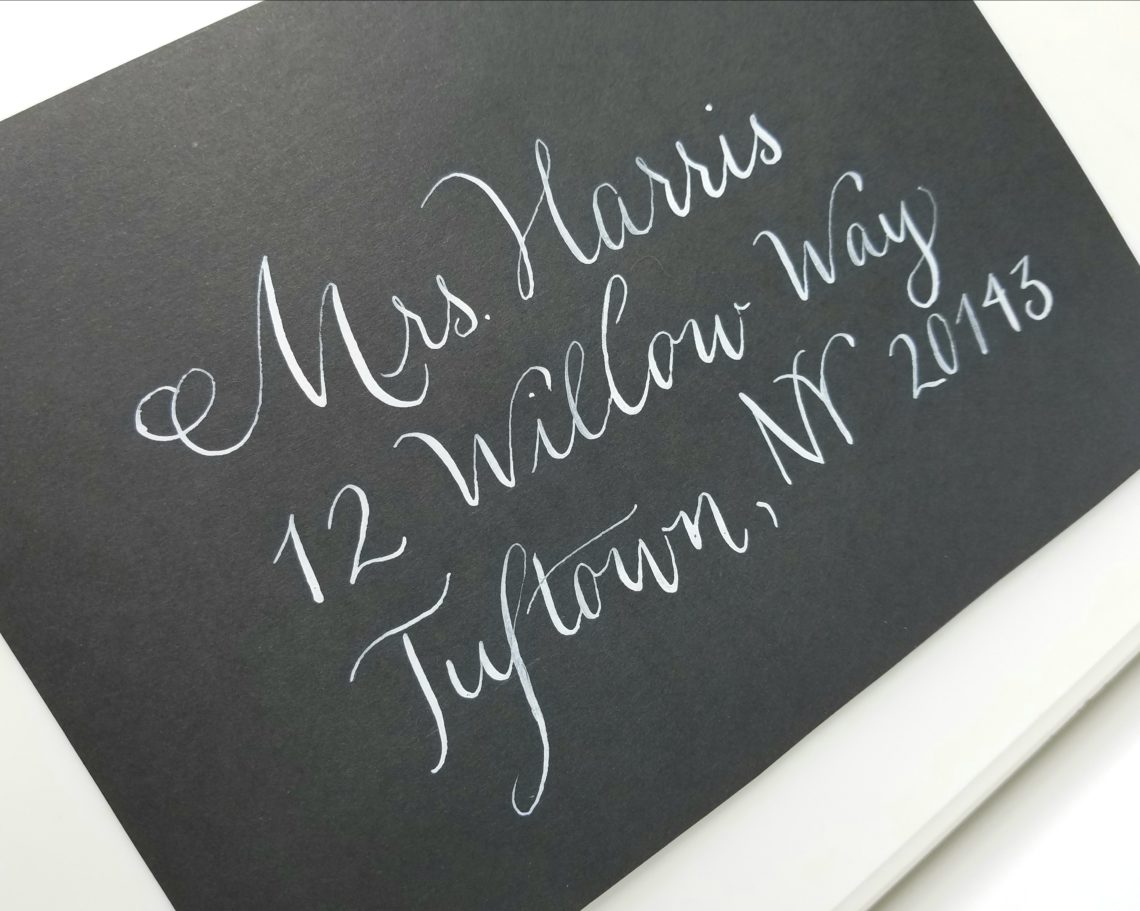 Mrs. Harris
12 Willow Way
Tuftown, NY 20143